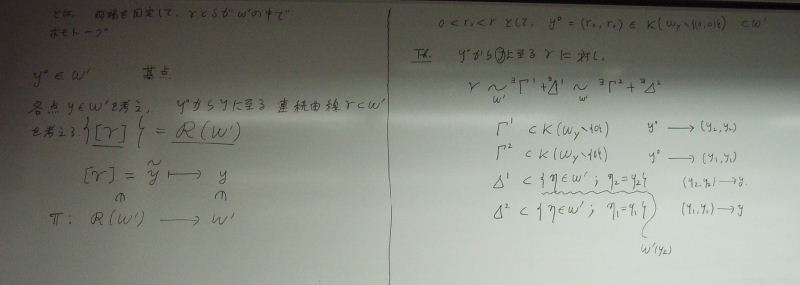 とは、両端を固定して、γとδが W'の中で
ホモトープ
y° ∈ W' 基点
各点 y∈W'を考え、 y°から yに至る 連続曲線 γ⊂W'
を考える {[γ]} = R(W')
[γ] = ỹ ⟼ y
π: R(W') ⟶ W'
0 < r₀ < r として, y° = (r₀, r₀) ∈ K(W_y∖{(0,0)}) ⊂ W'
y°から yに至る γ に対し,
γ ~_{W'} ∃Γ¹ + ∃Δ¹ ~_{W'} ∃Γ² + ∃Δ²
Γ¹ ⊂ K(W_y∖{0}) y° ⟶ (y₂, y₂)
Γ² ⊂ K(W_y∖{0}) y° ⟶ (y₁, y₁)
Δ¹ ⊂ {η∈W' ; η₂=y₂} (y₂, y₂) ⟶ y.
Δ² ⊂ {η∈W' ; η₁=y₁} (y₁, y₁) ⟶ y
W'(y₂)